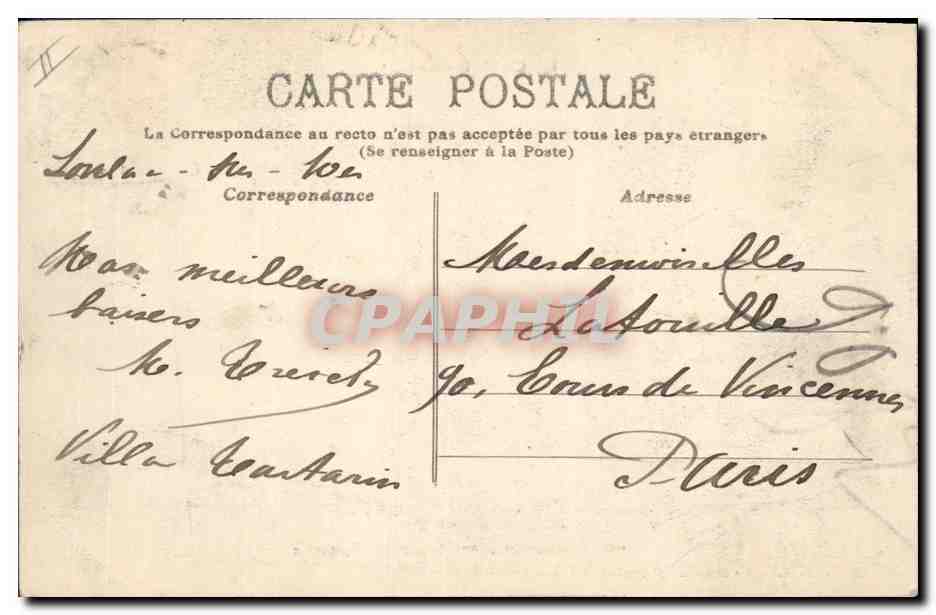 II
CARTE POSTALE
La Correspondance au recto n'est pas acceptée par tous les pays étrangers
(Se renseigner à la Poste)
Soulac - sur - Mer
Correspondance
Adresse
meilleurs
baisers
M.
Villa Tartarin
Mesdemoiselles
Latouille
90, Cours de Vincennes
Paris
CPAPHIL